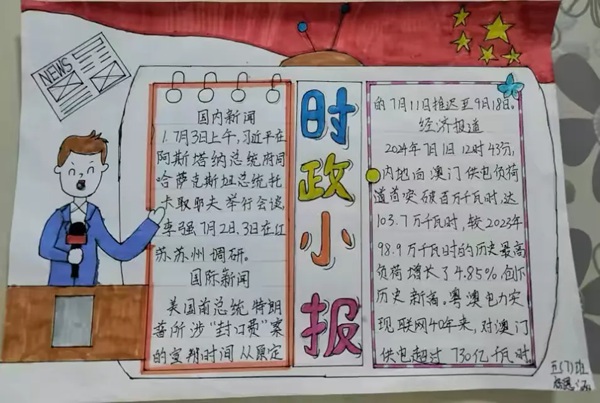 NEWS
时政小报
国内新闻
1.7月3日上午,习近平在
阿斯塔纳总统府同
哈萨克斯坦总统托
卡耶夫举行会谈
李强7月2日、3日在江
苏苏州调研。
国际新闻
美国前总统特朗
普所涉“封口费”案
的宣判时间从原定
的7月11日推迟至9月18日。
经济报道
2024年7月1日12时43分,
内地向澳门供电负荷
首次突破百万千瓦时,达
103.7万千瓦时,较2023年
98.9万千瓦时的历史最高
负荷增长了4.85%,创下
历史新高。粤澳电力实
现联网40年来,对澳门
供电超过730亿千瓦时
五(7)班